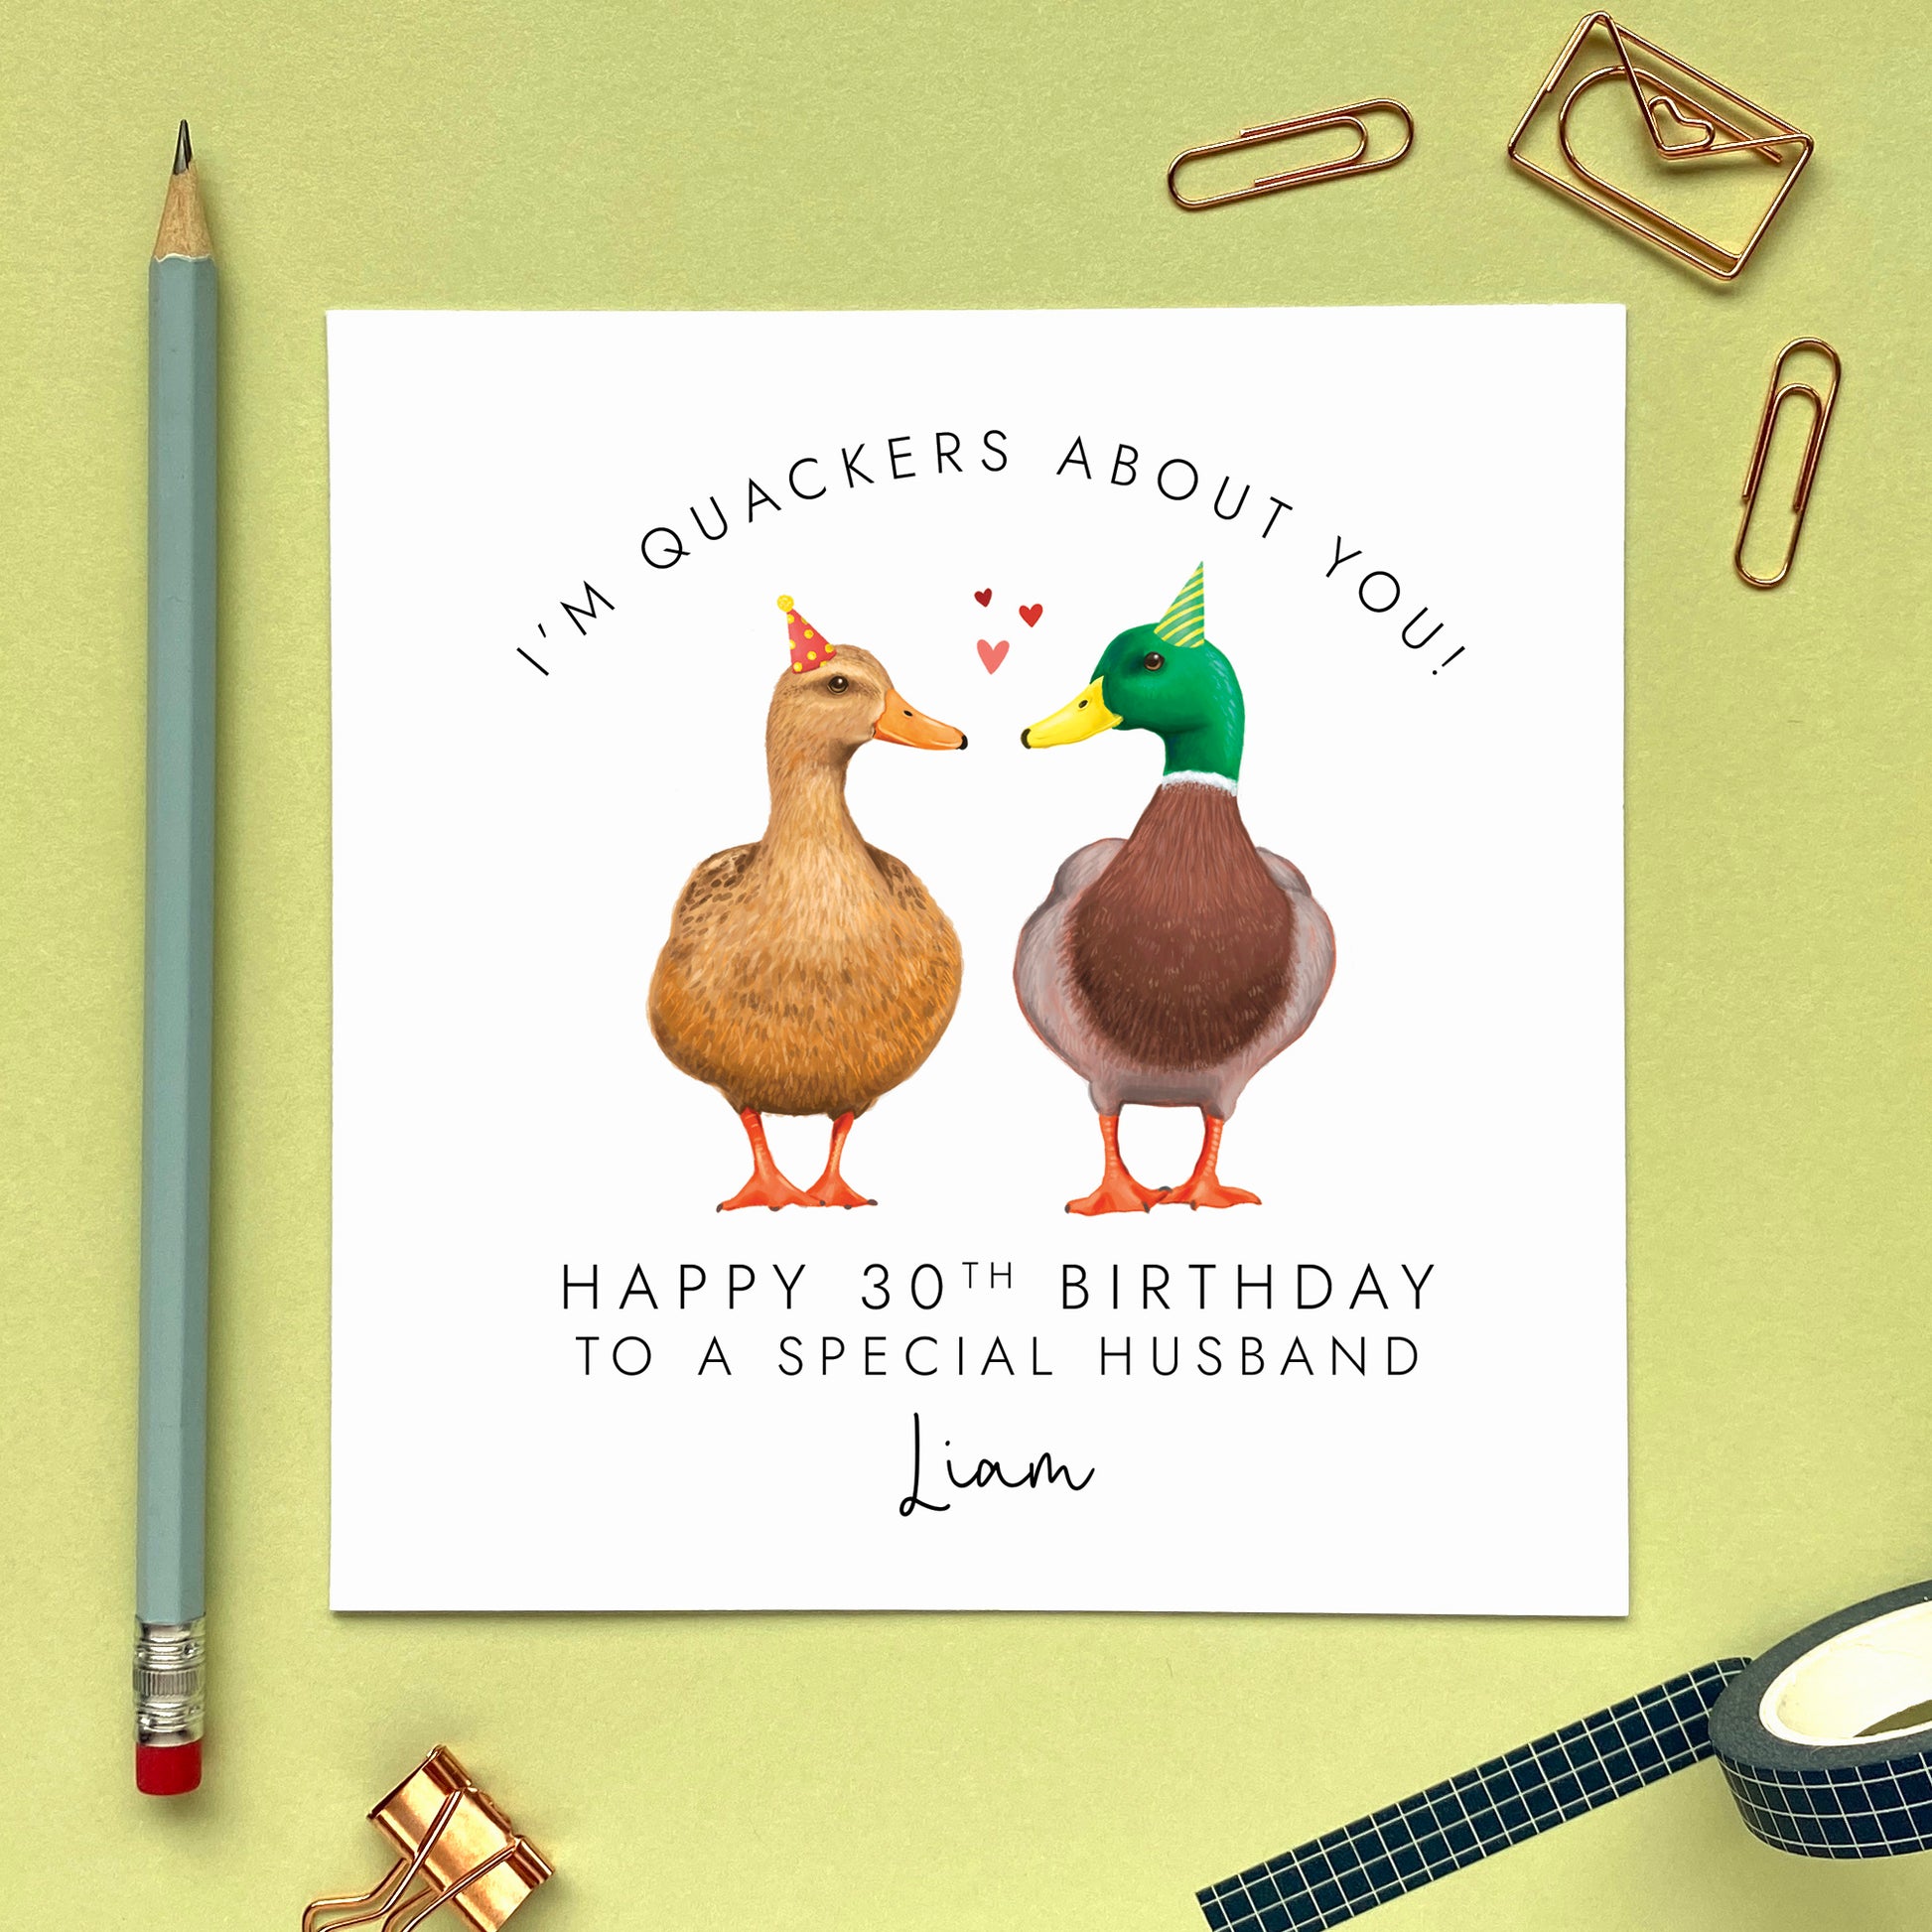 I'M QUACKERS ABOUT YOU!
HAPPY 30TH BIRTHDAY
TO A SPECIAL HUSBAND
Liam